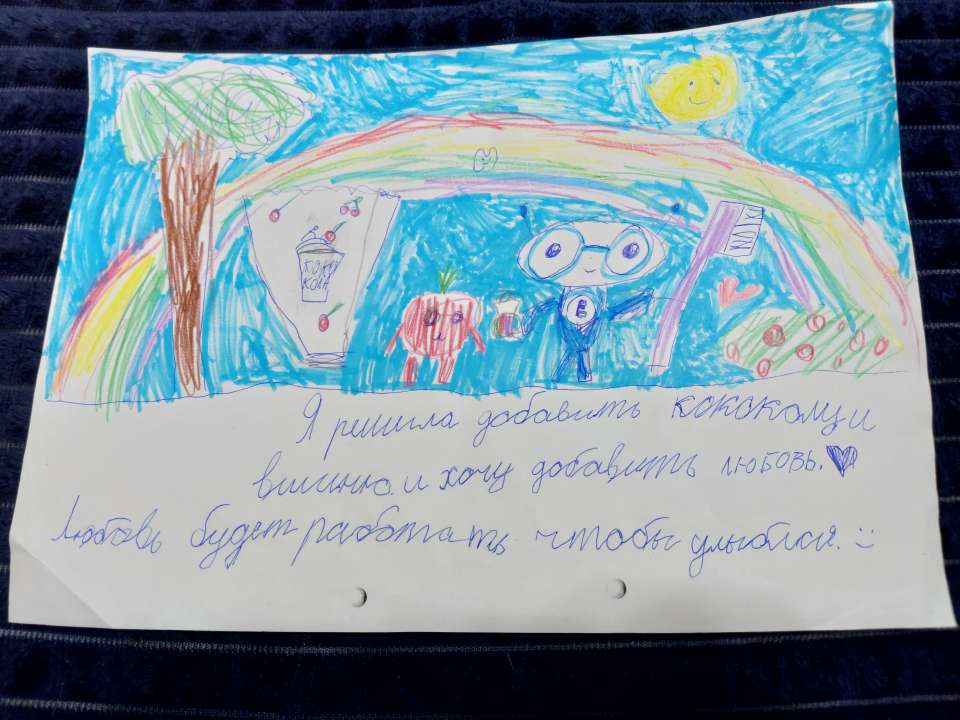 КОКО
КОЛА
Я решила добавить кококолу и
вишню. и хочу добавить любовь.
Любовь будет работать чтобы улыблся. :)